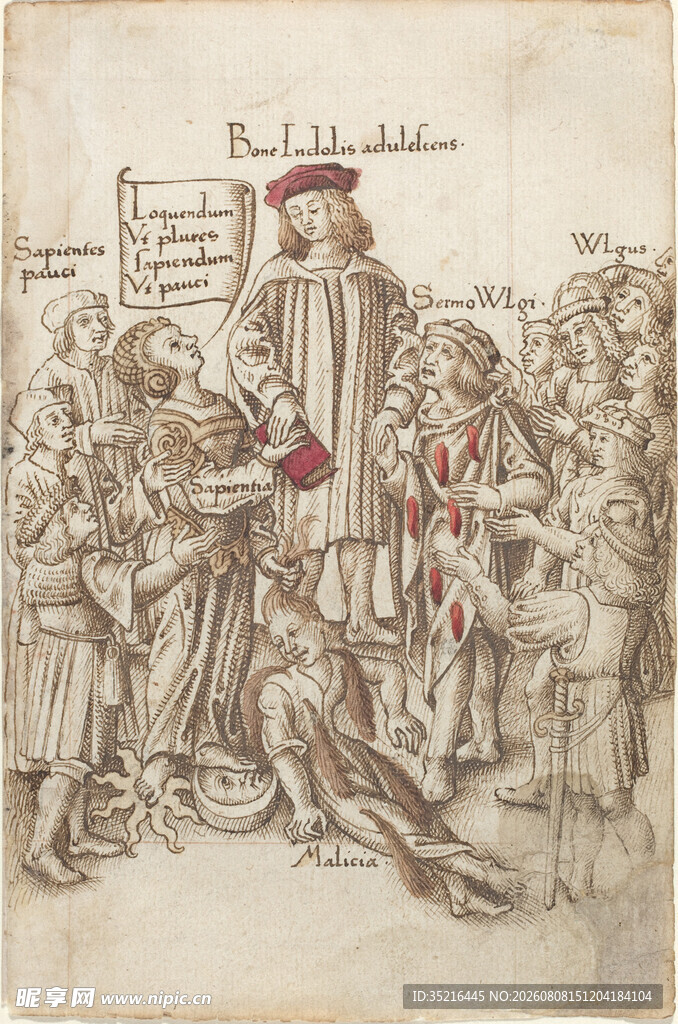 Bone Indolis adulescens.
Loquendum
Vt plures
sapiendum
Vt pauci
Sapientes
pauci
WLgus.
Sermo WLgi.
Sapientia
Malicia.
昵享网 www.nipic.cn
ID:35216445 NO:20260808151204184104